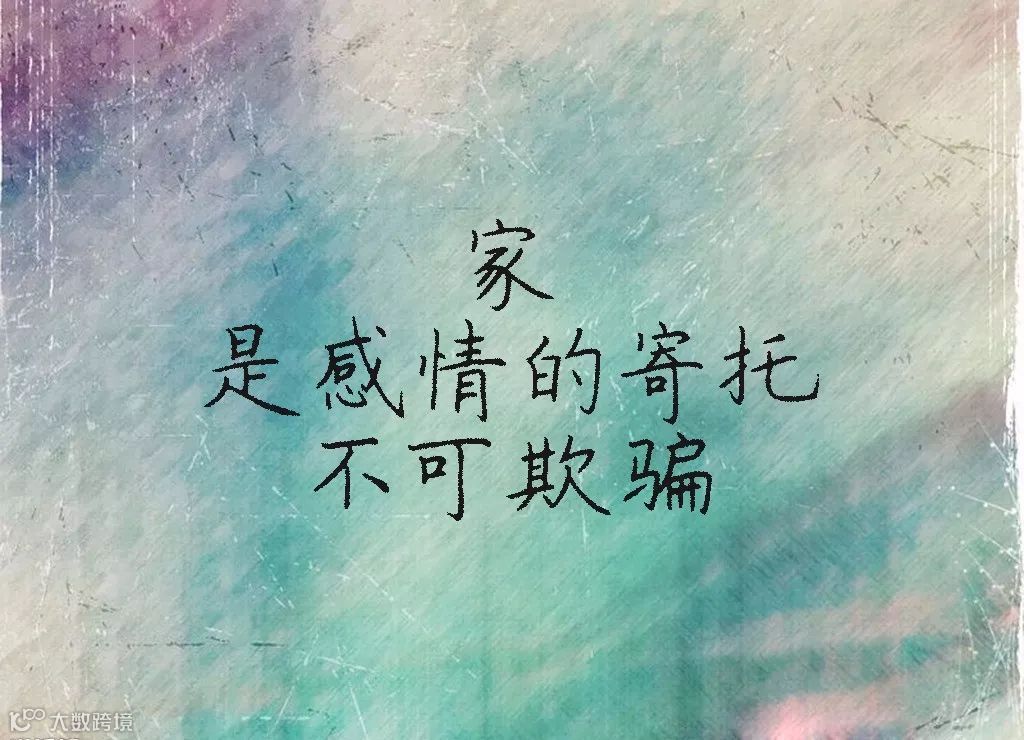 家
是感情的寄托
不可欺骗
大数跨境